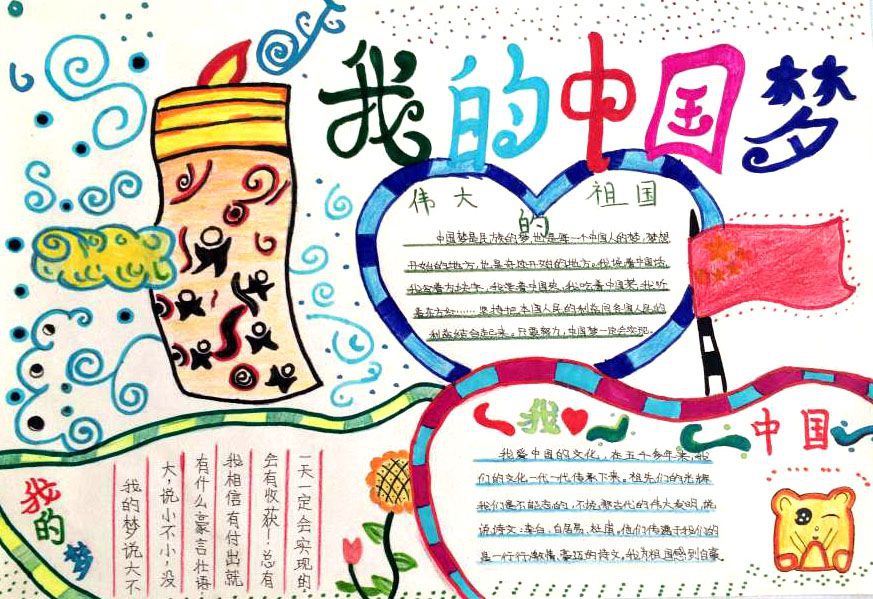 我的中国梦
伟大的祖国
中国梦是民族的梦,也是每一个中国人的梦,梦想
开始的地方,也是奇迹开始的地方。我说着中国话,
我写着方块字,我 着中国 ,我 着中国梦,我听
着东方红……坚持把本国人民的利益同各国人民的
利益结合起来。只要努力,中国梦一定会实现.
我中国
我爱中国的文化。在五千多年来,我
们的文化一代一代传承下来。祖先们的光辉
我们是不能忘的,不 古代的伟大发明,就
说诗文:李白,白居易,杜甫,他们传递于我们的
是一行行激情,豪迈的诗文。我为祖国感到自豪
我的梦
我的梦说大不
大,说小不小,没
有什么豪言壮语
我相信有付出就
会有收获!总有
一天一定会实现的.